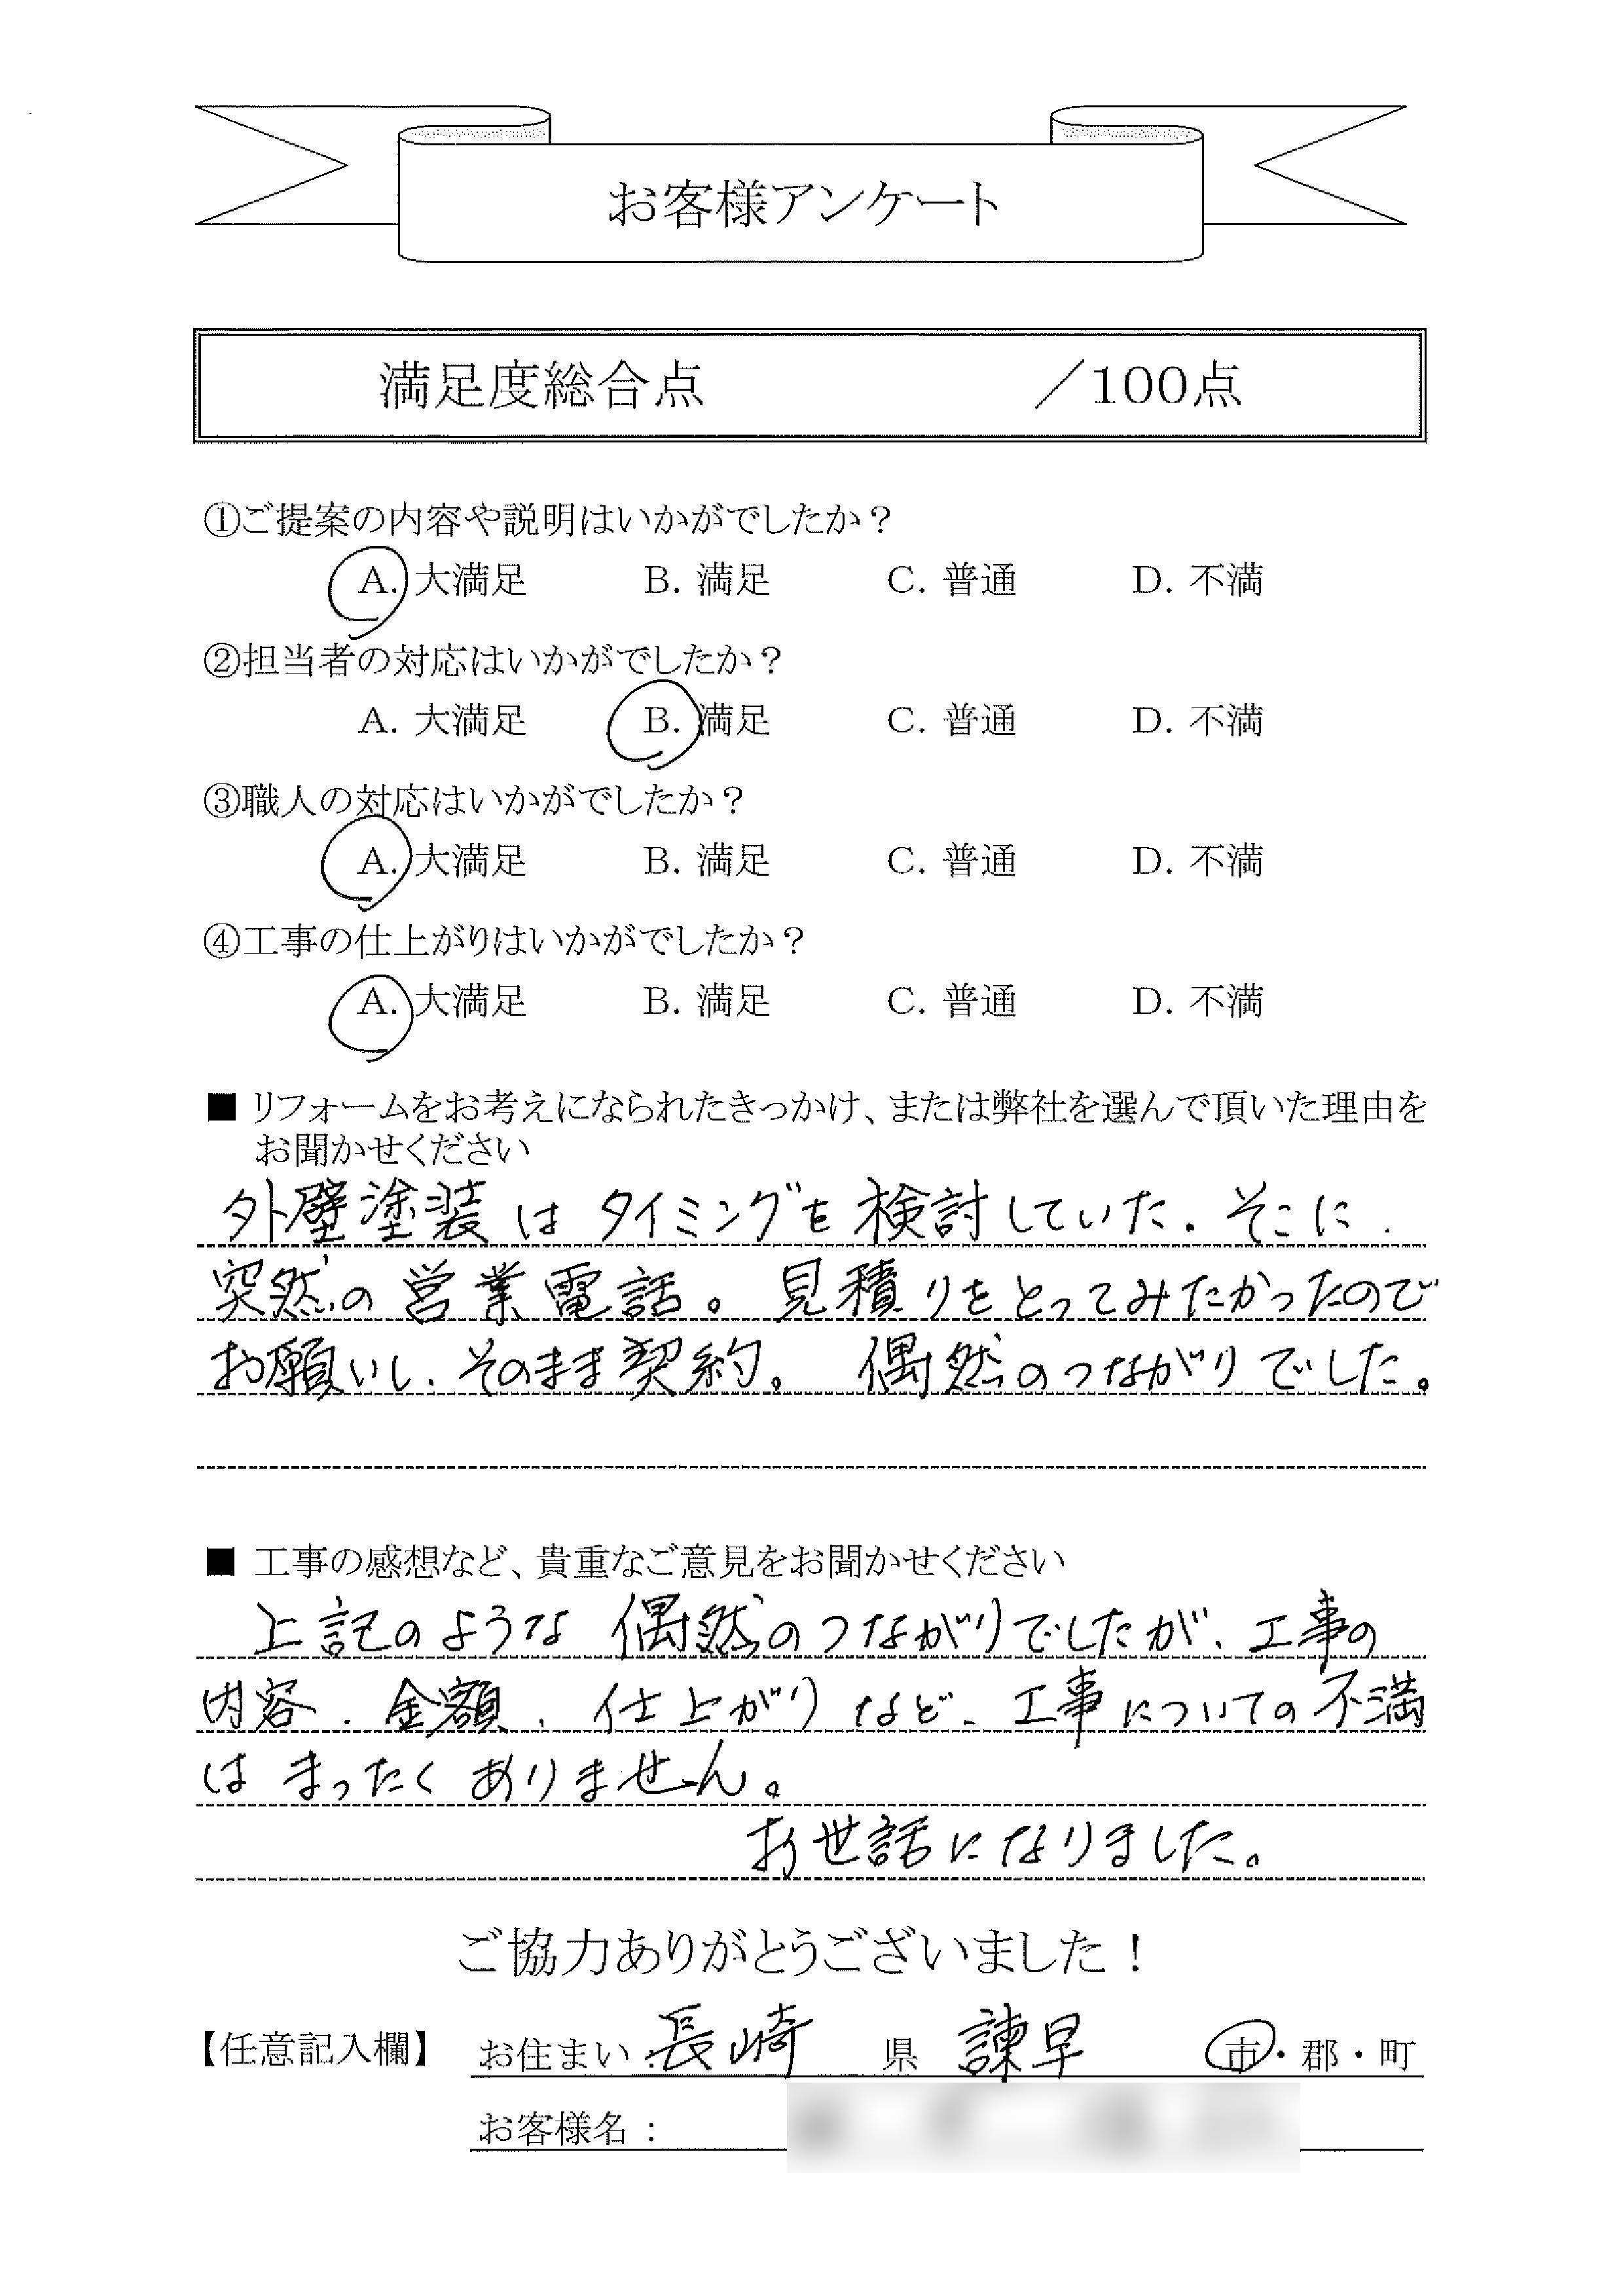 お客様アンケート
満足度総合点 ／100点
①ご提案の内容や説明はいかがでしたか？
A. 大満足 B. 満足 C. 普通 D. 不満
②担当者の対応はいかがでしたか？
A. 大満足 B. 満足 C. 普通 D. 不満
③職人の対応はいかがでしたか？
A. 大満足 B. 満足 C. 普通 D. 不満
④工事の仕上がりはいかがでしたか？
A. 大満足 B. 満足 C. 普通 D. 不満
■ リフォームをお考えになられたきっかけ、または弊社を選んで頂いた理由を
お聞かせください
外壁塗装はタイミングを検討していた。そこに、
突然の営業電話。見積りをとってみたかったので
お願いし、そのまま契約。偶然のつながりでした。
■ 工事の感想など、貴重なご意見をお聞かせください
上記のような偶然のつながりでしたが、工事の
内容、金額、仕上がりなど、工事についての不満
はまったくありません。
お世話になりました。
ご協力ありがとうございました！
【任意記入欄】 お住まい：長崎 県 諫早 市・郡・町
お客様名：